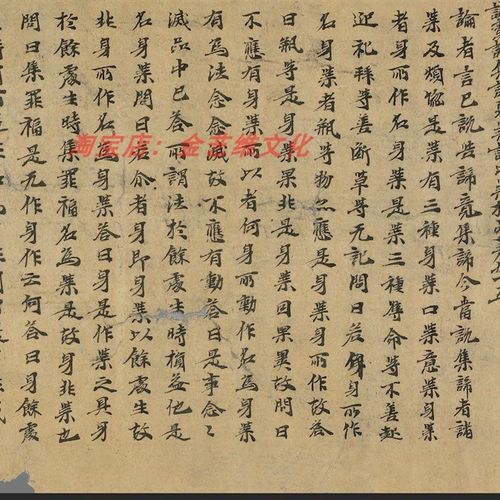 論者言已說苦諦竟集諦今當說集諦者諸
業及煩惱是業有三種身業口業意業身業
者身所作名身業是業三種奪命等不善起
迎礼拜等善斷草等无記問曰若身所作
名身業者瓶等物亦應是身業身所作故答
曰瓶等是身業果非是身業因果異故問曰
不應有身業所以者何身所動作名為身業
有為法念〻滅故不應有動答曰是事念〻
滅品中已答所謂法於餘處生時損益他是
名身業問曰若尒者身即身業以餘處生故
非身所作名為身業答曰身是作業之具身
於餘處生時集罪福名為業是故身非業也
問曰集罪福是无作身作云何答曰身餘處
淘宝店：金艺缘文化